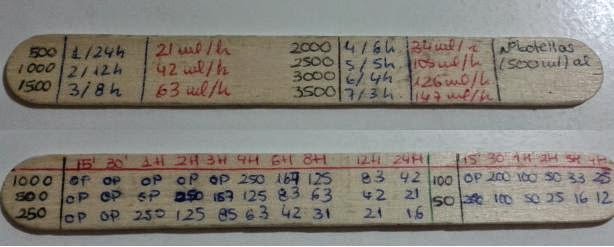 500 1/24h 21 ml/h 2000 4/6h 84 ml/h Nº botellas
1000 2/12h 42 ml/h 2500 5/5h 105 ml/h (500ml) al
1500 3/8h 63 ml/h 3000 6/4h 126 ml/h
3500 7/3h 147 ml/h
15' 30' 1H 2H 3H 4H 6H 8H 12H 24H 15' 30' 1H 2H 3H 4H
1000 OP OP OP OP OP 250 167 125 83 42 100 OP 200 100 50 33 25
500 OP OP OP 250 167 125 83 63 42 21 50 200 100 50 25 16 12
250 OP OP 250 125 85 63 42 31 21 16